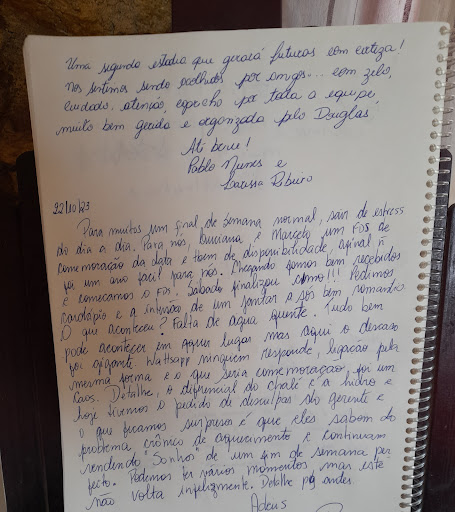 Uma segunda estadia que gerará futuras com certeza!
Nos sentimos sendo acolhidos por amigos... com zelo,
cuidado, atenção, capricho por toda a equipe,
muito bem gerida e organizada pelo Douglas!
Até breve!
Pablo Nunes e
Larissa Ribeiro
22/10/23
Para muitos um final de semana normal, sair do estress
do dia a dia. Para nós, e Marcelo um FDS de
comemoração da data e tbem de disponibilidade, afinal ñ
foi um ano fácil para nós. Chegando fomos bem recebidos
e começamos o FDS. Sábado finalizou como!!! Pedimos
cardápio e a intensão de um jantar a sós bem romantico
O que aconteceu? Falta de água quente. Tudo bem
pode acontecer em lugar mas aqui o descaso
foi gigante. Wattsapp ninguem responde, ligação pela
mesma forma e o que seria comemoração, foi um
caos. Detalhe, o diferencial do chalé é a hidro e
hoje tivemos o pedido de desculpas do gerente e
o que ficamos surpresos é que eles sabem do
problema crônico de aquecimento e continuam
vendendo "Sonhos" de um fim de semana per
feito. Podemos ter vários momentos, mas este
não volta infelizmente. Detalhe
Adeus